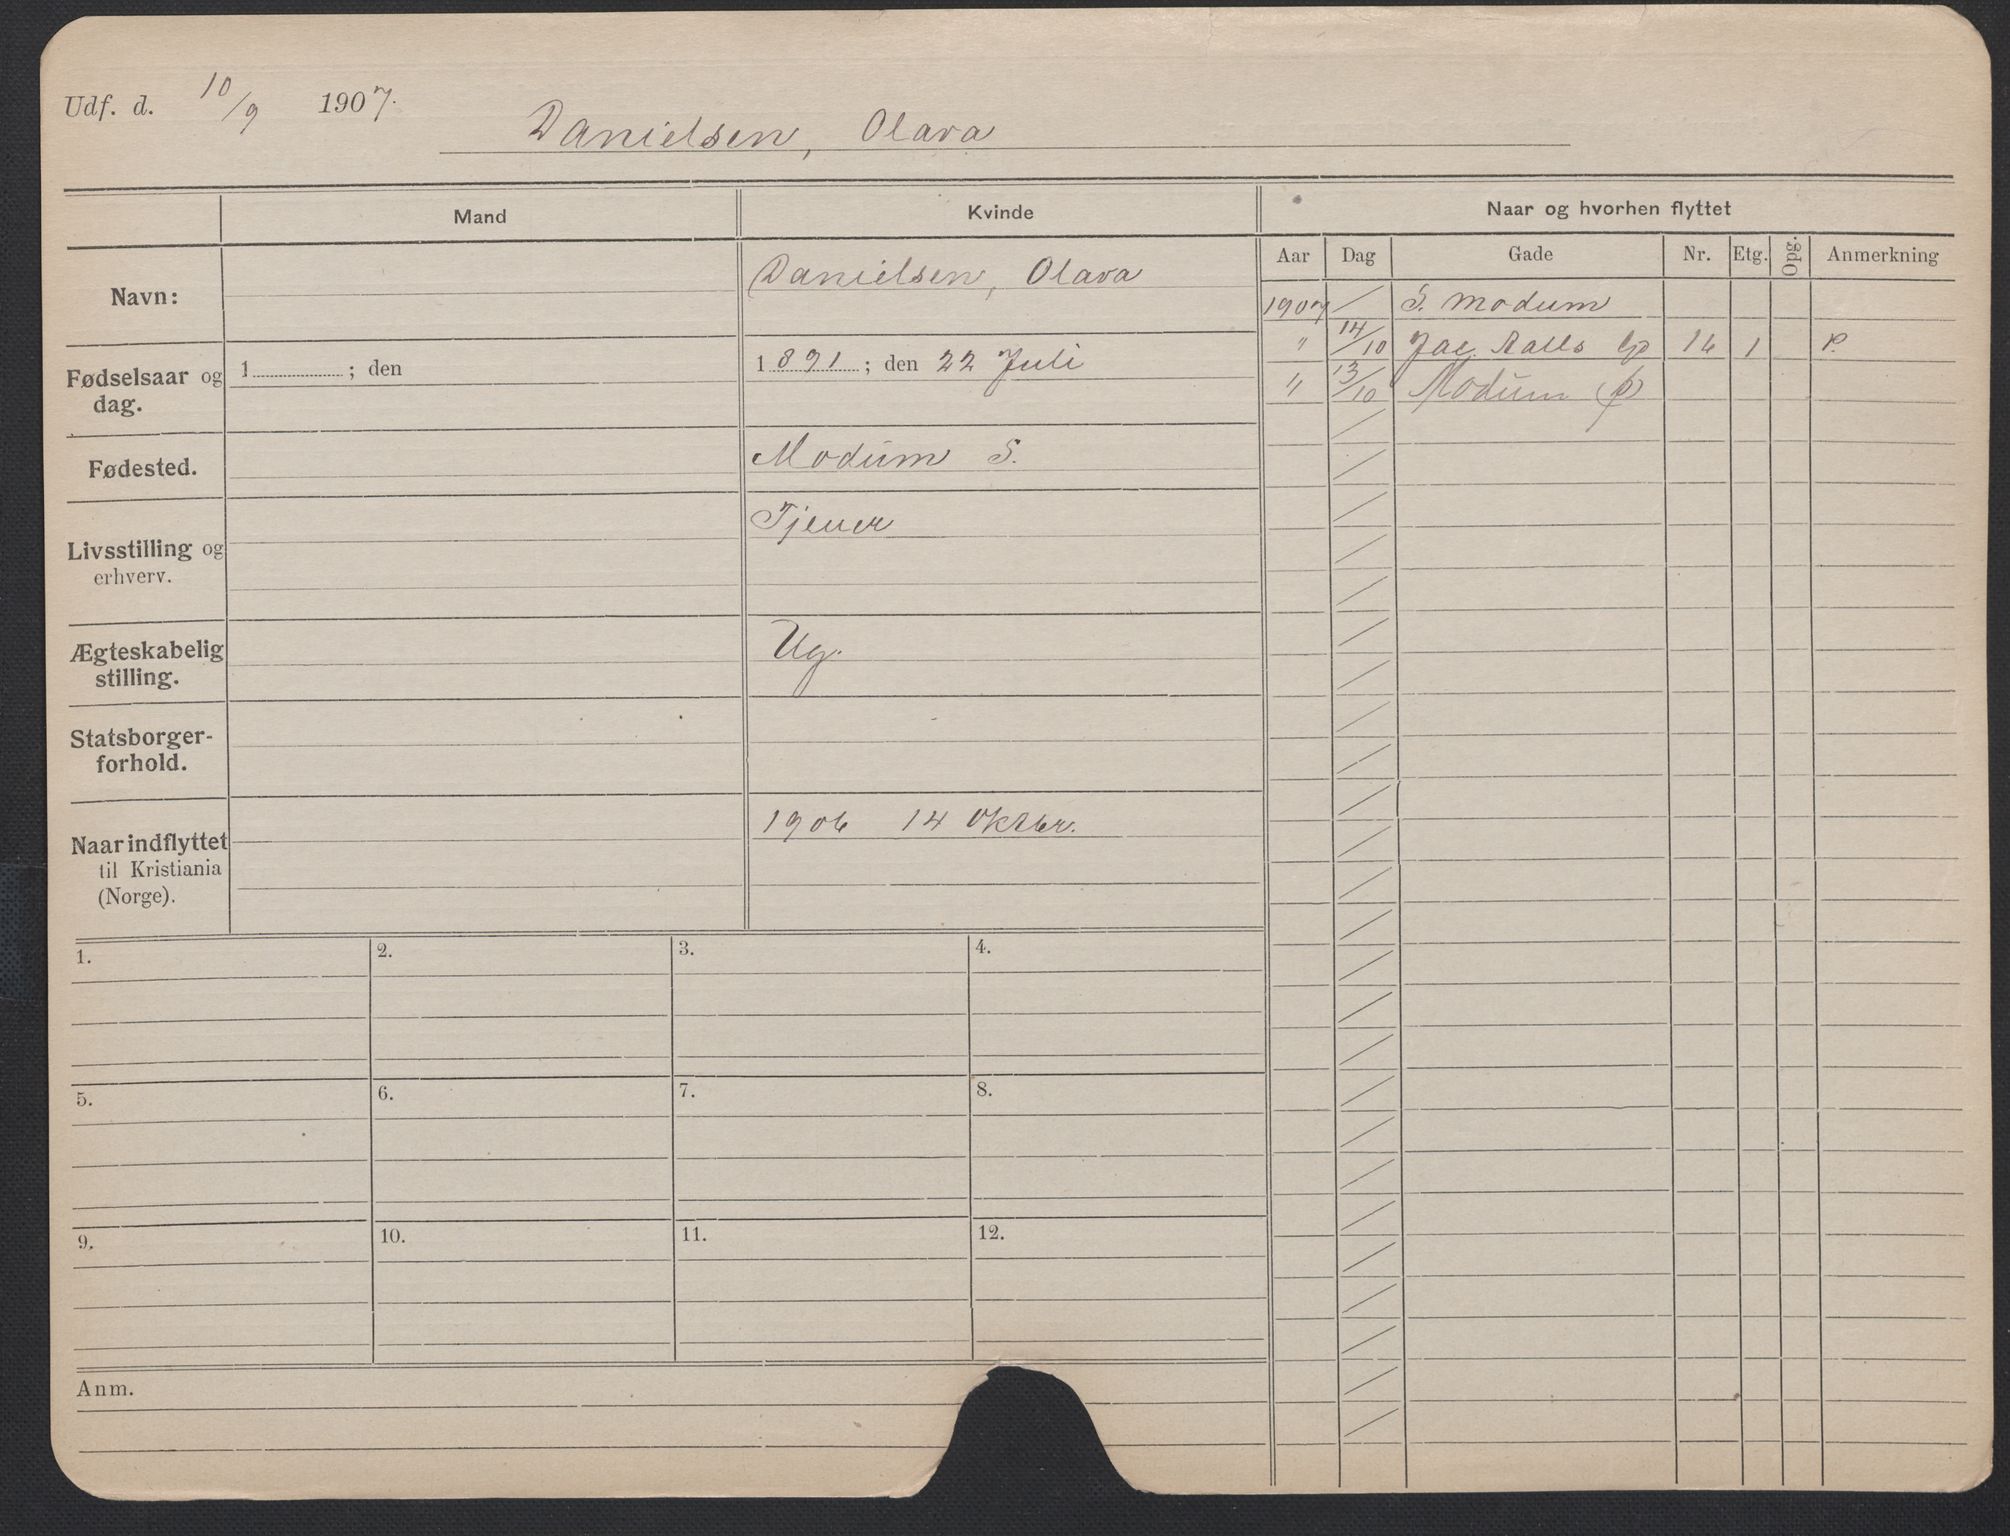 Udf. d. 10/9 1907.
Danielsen, Olava
Mand
Kvinde
Naar og hvorhen flyttet
Aar Dag Gade Nr. Etg. Opg. Anmerkning
Navn:
Danielsen, Olava
Fødselsaar og dag.
1 ; den
1891 ; den 22 Juli
Fødested.
Modum S.
Livsstilling og
erhverv.
Tjener
Ægteskabelig
stilling.
Ug.
Statsborger-
forhold.
Naar indflyttet
til Kristiania
(Norge).
1906 14 Oktbr.
1907 / S. Modum
" 14/10 Jac. Aalls 16 1 P.
" 13/10 Modum (p)
1. 2. 3. 4.
5. 6. 7. 8.
9. 10. 11. 12.
Anm.